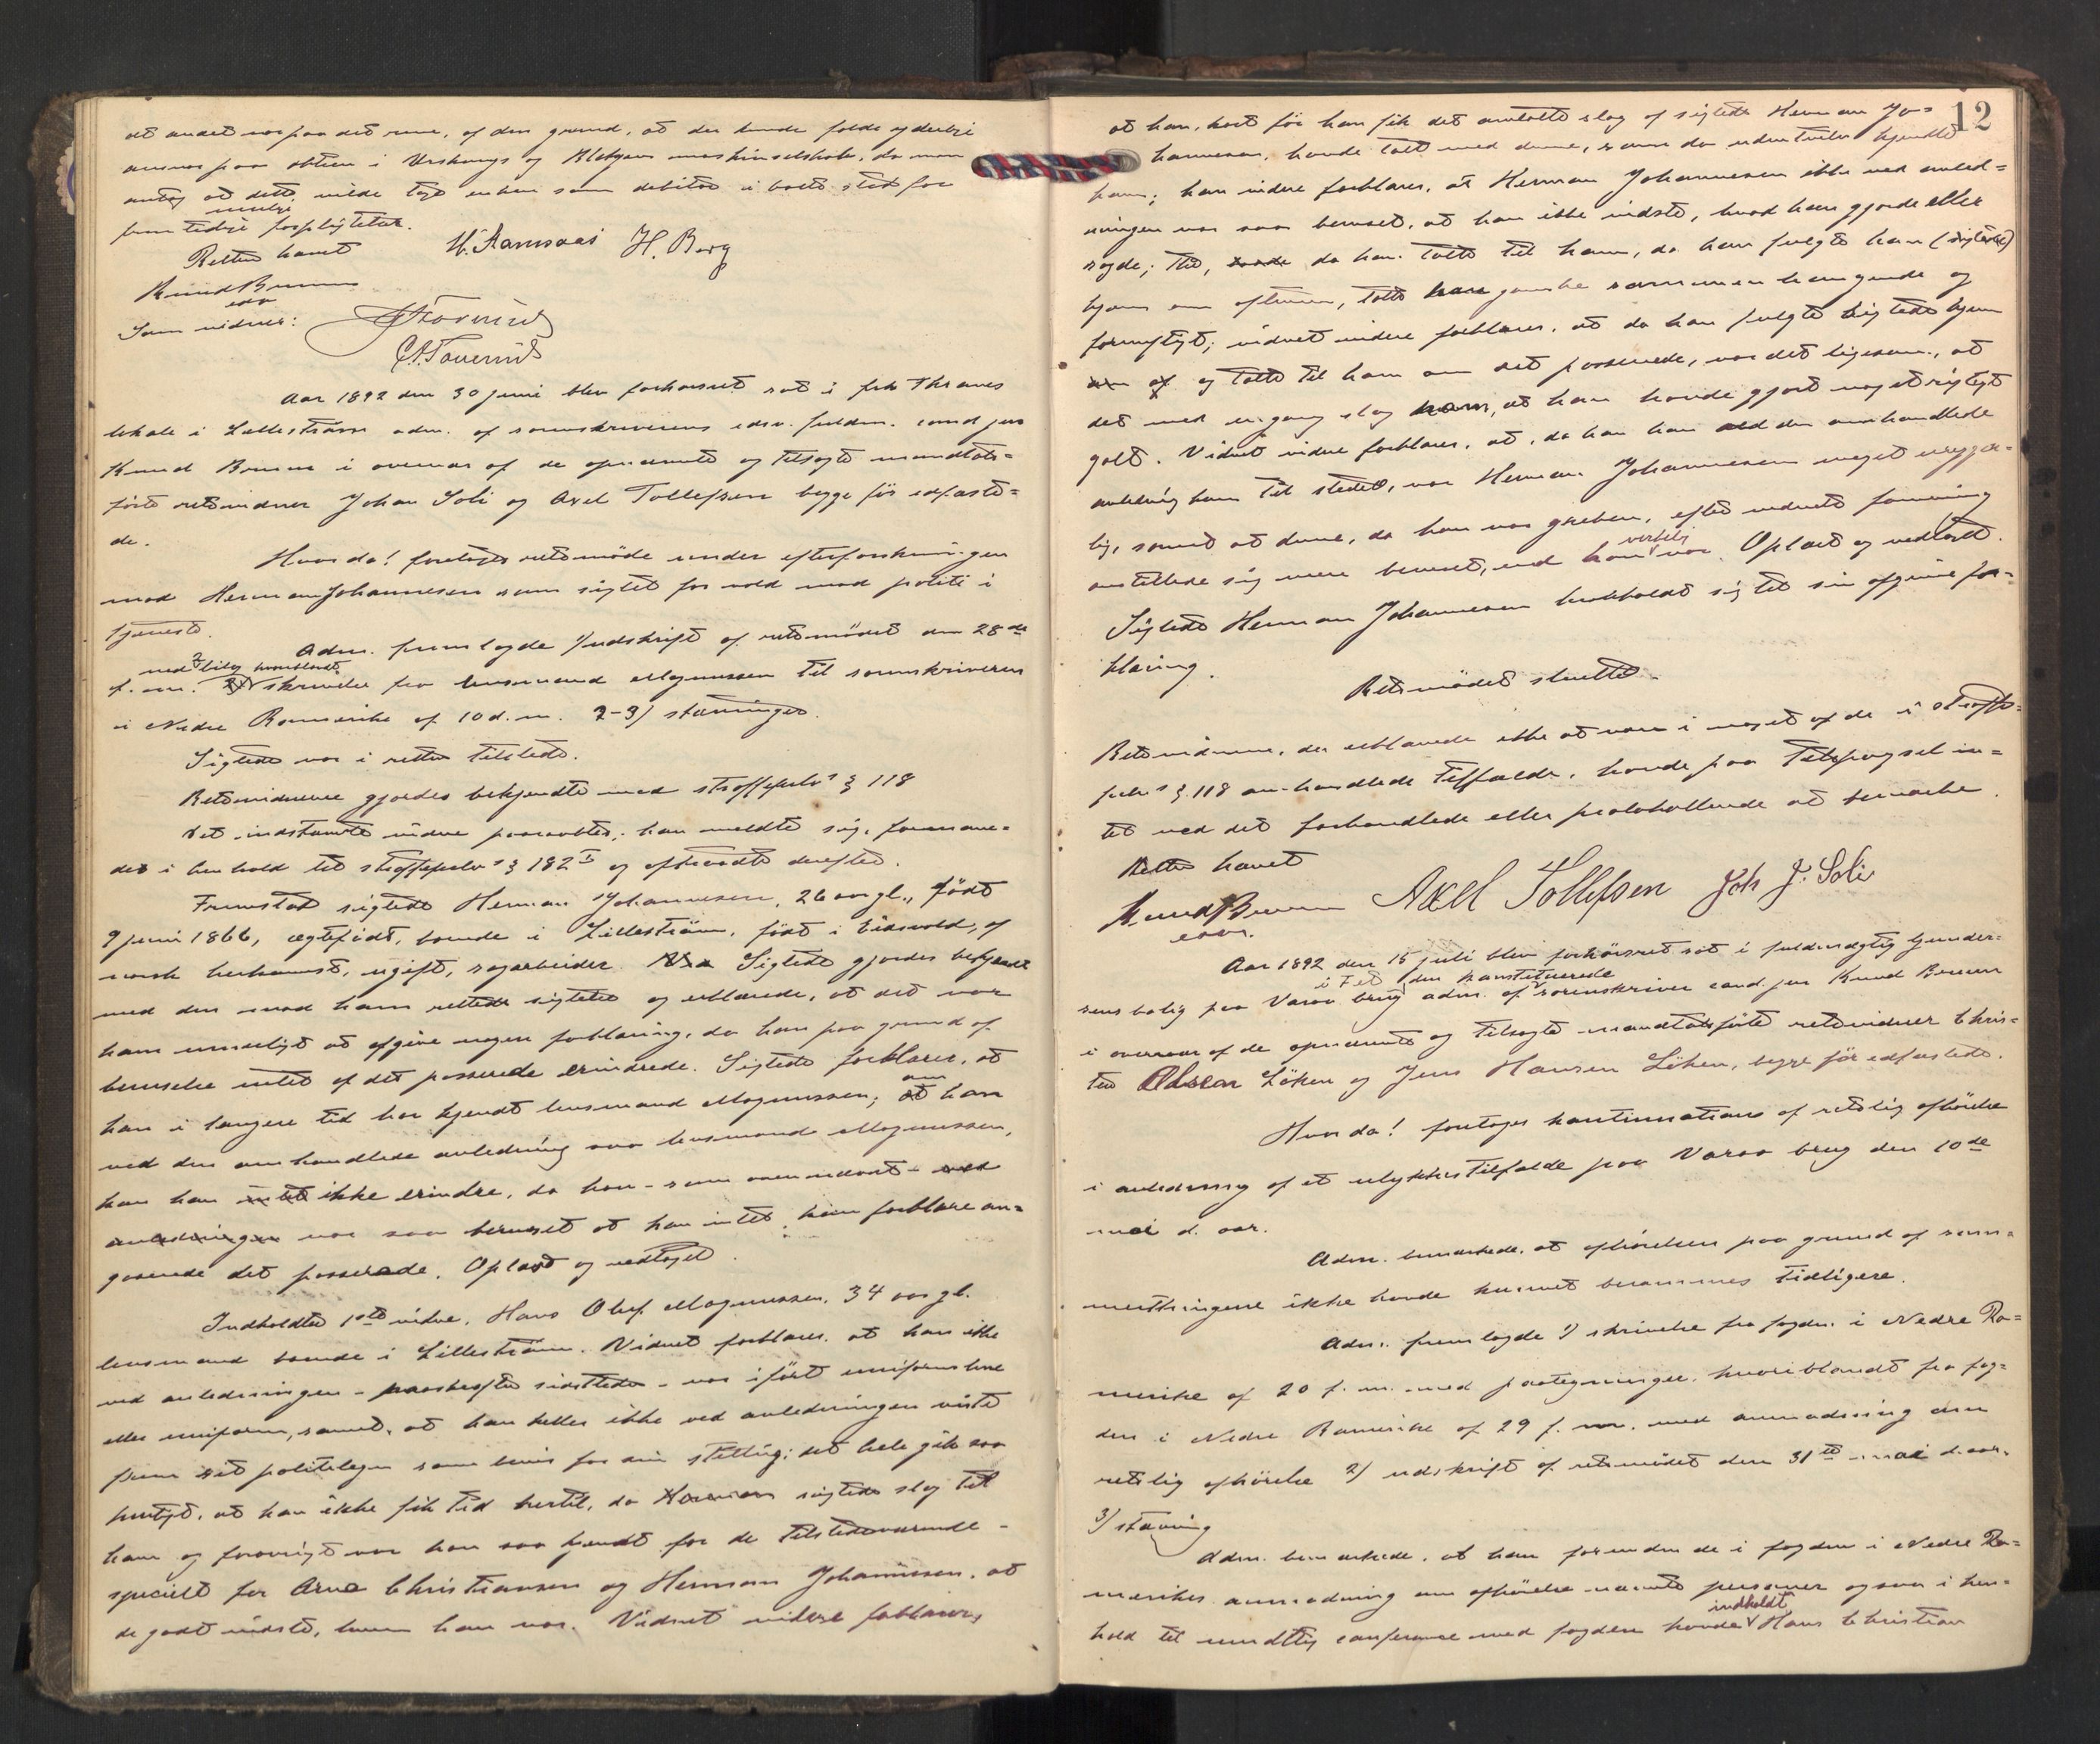 at andet var paa det rene, af den grund, at der kunde falde yderlige
ansvar paa aktien i Urskougs og Blakjers maskinselskab, da man
antog at dette vilde tage enken som debitor i boets sted for
mulige
fremtidige forpligtelser.
Retten hævet
H. Aamaas H. Berg
Knud Bruun
edv
Som vidner:
Aar 1892 den 30 juni blev forhørsret sat i frk Thranes
lokale i Lillestrøm adm. af sorenskriverens edsv. fuldm. cand jur
Knud Bruun i overvær af de opnævnte og tilsagte mandtals=
førte retsvidner Johan Soli og Axel Tollefsen begge før edfæste=
de.
Hvorda! foretoges retsmøde under efterforskningen
mod Herman Johannesen som sigtet for vold mod politi i
tjeneste.
Adm. fremlagde 1/ udskrift af retsmødet den 28de
med bilag hvoriblandt
f. m. skrivelse fra lensmand Magnussen til sorenskriveren
i Nedre Romerike af 10 d. m. 2-3/ stævninger.
Sigtede var i retten tilstede.
Retsvidnerne gjordes bekjendte med straffeprlov's § 118
Det indstævnte vidne paaraabtes; han meldte sig, formane=
des i henhold til straffeprlov's § 182 I og aftraadte derefter.
Fremstod sigtede Herman Johannesen, 26 aar gl., født
9 juni 1866, ægtefødt, boende i Lillestrøm, født i Eidsvold, af
norsk herkomst, ugift, sagarbeider. Sigtede gjordes bekjendt
med den mod ham rettede sigtelse og erklærede, at det var
ham umuligt at afgive nogen forklaring, da han paa grund af
beruselse intet af det passerede erindrede. Sigtede forklarer, at
han i længere tid har kjendt lensmand Magnussen; om han
ved den omhandlede anledning saa lensmand Magnussen,
kan han intet ikke erindre, da han - som ovenanført - ved
anledningen var saa beruset at han intet kan forklare an=
gaaende det passerede. Oplæst og vedtaget.
Indkaldtes 1ste vidne, Hans Oluf Magnussen, 34 aar gl.
lensmand boende i Lillestrøm. Vidnet forklarer, at han ikke
ved anledningen - paaskeaften sidstleden - var iført uniformslue
eller uniform, samt, at han heller ikke ved anledningen viste
frem sit politilegn som bevis for sin stilling; det hele gik saa
hurtigt, at han ikke fik tid hertil, da Herman sigtede slog til
ham og forøvrigt var han saa kjendt for de tilstedeværende -
specielt for Arne Christiansen og Herman Johannesen, at
de godt vidste, hvem han var. Vidnet videre forklarer,
12
at han, kort før han fik det omtalte slag af sigtede Herman Jo=
hannesen, havde talt med denne, som da udentvivl kjendte
ham; han videre forklarer, at Herman Johannesen ikke ved anled=
ningen var saa beruset, at han ikke vidste, hvad han gjorde eller
sagde; thi, da han talte til ham, da han fulgte han (sigtede)
hjem om aftenen, talte han ganske sammenhængende og
fornuftigt; vidnet videre forklarer, at da han fulgte sigtede hjem
og talte til ham om det passerede, var det ligesom, at
det med engang slog ham, at han havde gjort noget rigtigt
galt. Vidnet videre forklarer, at, da han kom ved den omhandlede
anledning kom til stedet, var Herman Johannesen meget uregjer=
lig, samt at denne, da han var greben, efter vidnets formening
virkelig
anstillede sig mere beruset, end han var. Oplæst og vedtaget.
Sigtede Herman Johannesen henholdt sig til sin afgivne for=
klaring.
Retsmødet sluttet.
Retsvidnerne, der erklærede ikke at være i noget af de i straffe=
prlov's § 118 omhandlede tilfælde, havde paa tilspørgsel in=
tet ved det forhandlede eller protokollerede at bemærke.
Retten hævet
Knud Bruun Axel Tollefsen Joh J. Soli
edsv.
Aar 1892 den 15 juli blev forhørsret sat i fuldmægtig Gunder=
i Fet den konstituerede
sens bolig paa Varaa brug adm. af sorenskriver cand. jur Knud Bruun
i overvær af de opnævnte og tilsagte mandtalsførte retsvidner Chris=
ten Oscar Löken og Jens Hansen Löken, begge før edfæstede.
Hvorda! foretoges kontinuation af retslig afhørelse
i anledning af et ulykkestilfælde paa Varaa brug den 10de
mai d. aar.
Adm. bemærkede, at afhørelsen paa grund af som=
mertingene ikke havde kunnet berammes tidligere.
Adm. fremlagde 1/ skrivelse fra fogden i Nedre Ro=
merike af 20 f. m. med paategninger, hvoriblandt fra fog=
den i Nedre Romerike af 29 f. m. med anmodning om
retslig afhørelse 2/ udskrift af retsmødet den 31te mai d. aar.
3/ stævning
Adm. bemærkede, at han foruden de i fogden i Nedre Ro=
merikes anmodning om afhørelse nævnte personer ogsaa i hen=
indkaldt
hold til mundtlig conferance med fogden havde Hans Christian